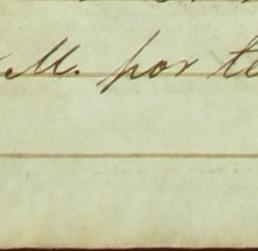 M. por te